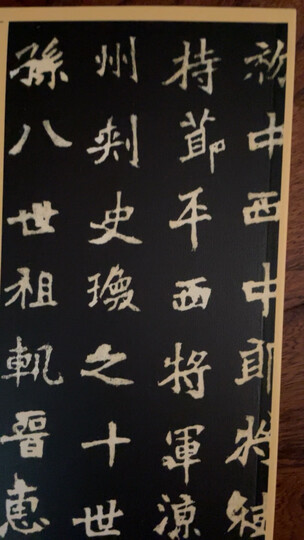 初中西中郎將使
持莭平西將軍涼
州刾史瑍之十世
孫八世祖軌晉惠